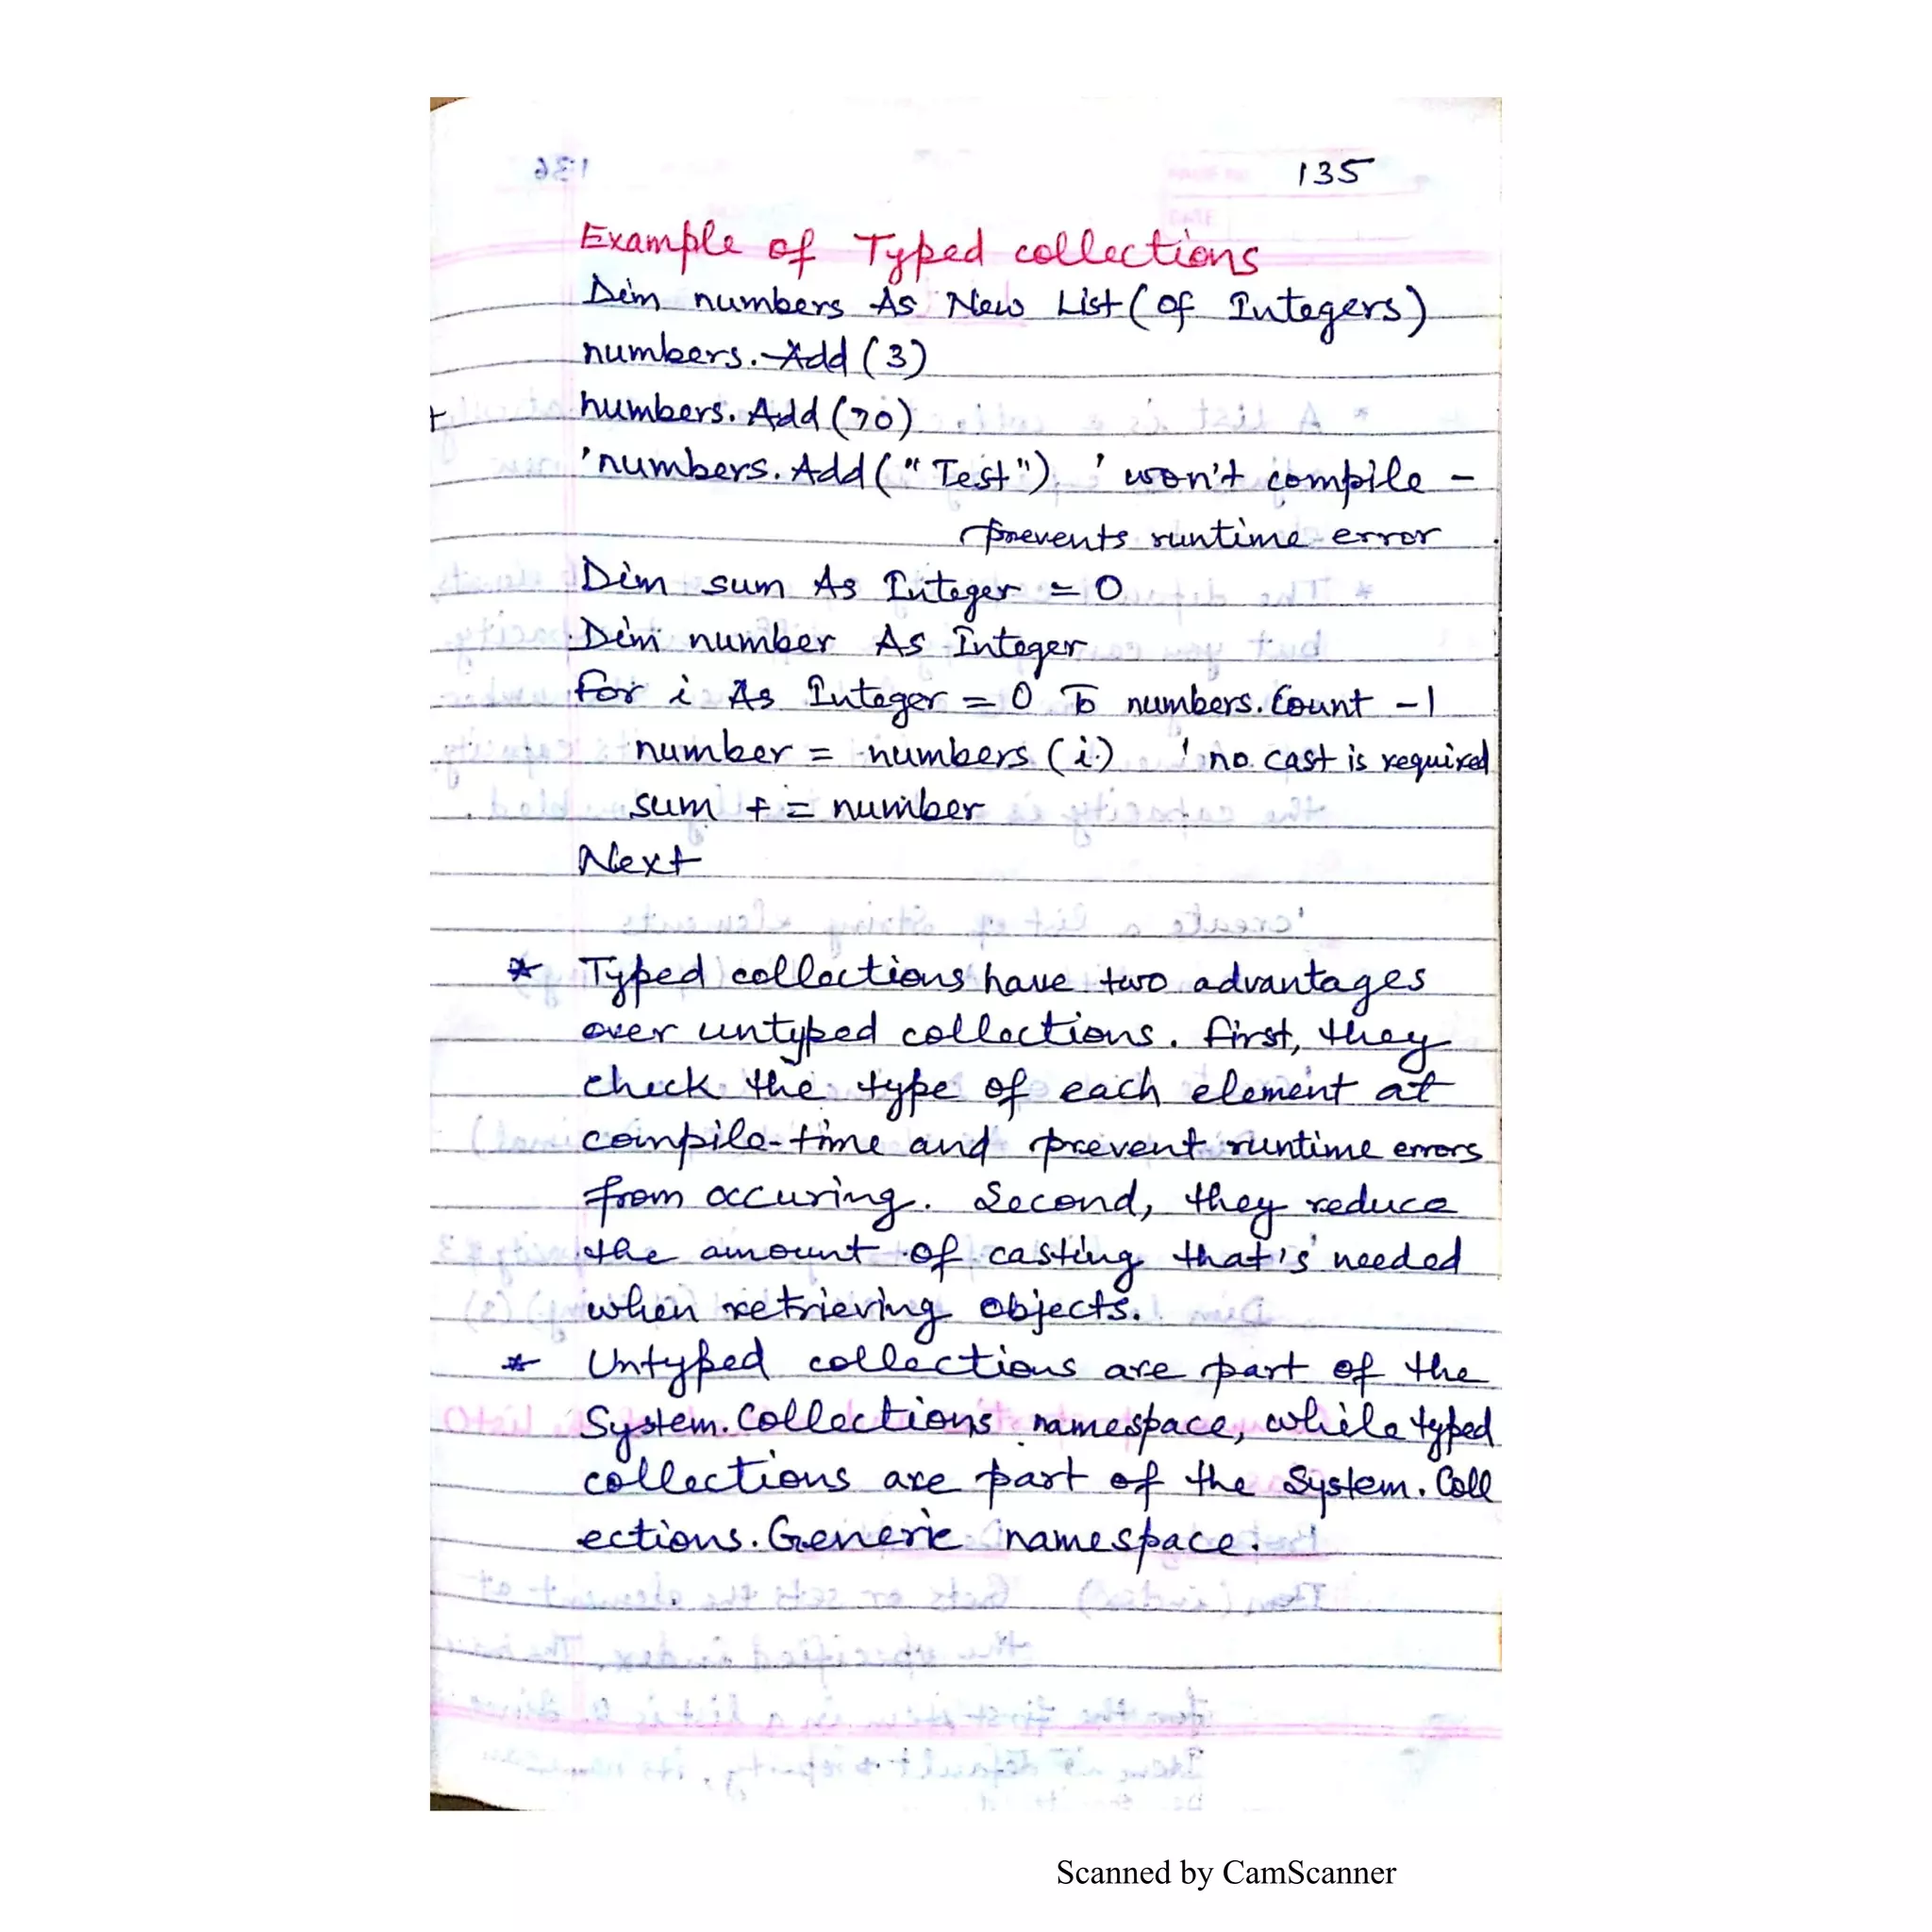 135
Example of Typed collections
Dim numbers As New List(Of Integers)
numbers.Add(3)
numbers.Add(70)
'numbers.Add("Test") ' won't compile -
prevents runtime error
Dim sum As Integer = 0
Dim number As Integer
For i As Integer = 0 To numbers.Count -1
number = numbers(i) ' no cast is required
sum += number
Next
* Typed collections have two advantages
over untyped collections. First, they
check the type of each element at
compile-time and prevent runtime errors
from occuring. Second, they reduce
the amount of casting that's needed
when retrieving objects.
* Untyped collections are part of the
System.Collections namespace, while typed
collections are part of the System.Coll
ections.Generic namespace.
Scanned by CamScanner